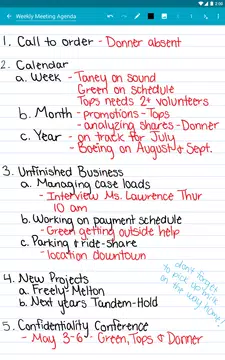 2:00
Weekly Meeting Agenda
1. Call to order - Donner absent
2. Calendar
a. Week - Taney on sound
Green on schedule
Tops needs 2+ volunteers
b. Month - promotions - Tops
- analyzing shares - Donner
c. Year - on track for July
- Boeing on August & Sept.
3. Unfinished Business
a. Managing case loads
- Interview Ms. Lawrence Thur
10 am
b. Working on payment schedule
- Green getting outside help
c. Parking & ride-share
- location downtown
don't forget
to pick up milk
on the way home!
4. New Projects
a. Freely-Melton
b. Next years Tandem-Hold
5. Confidentiality Conference
- May 3-6 - Green, Tops & Donner